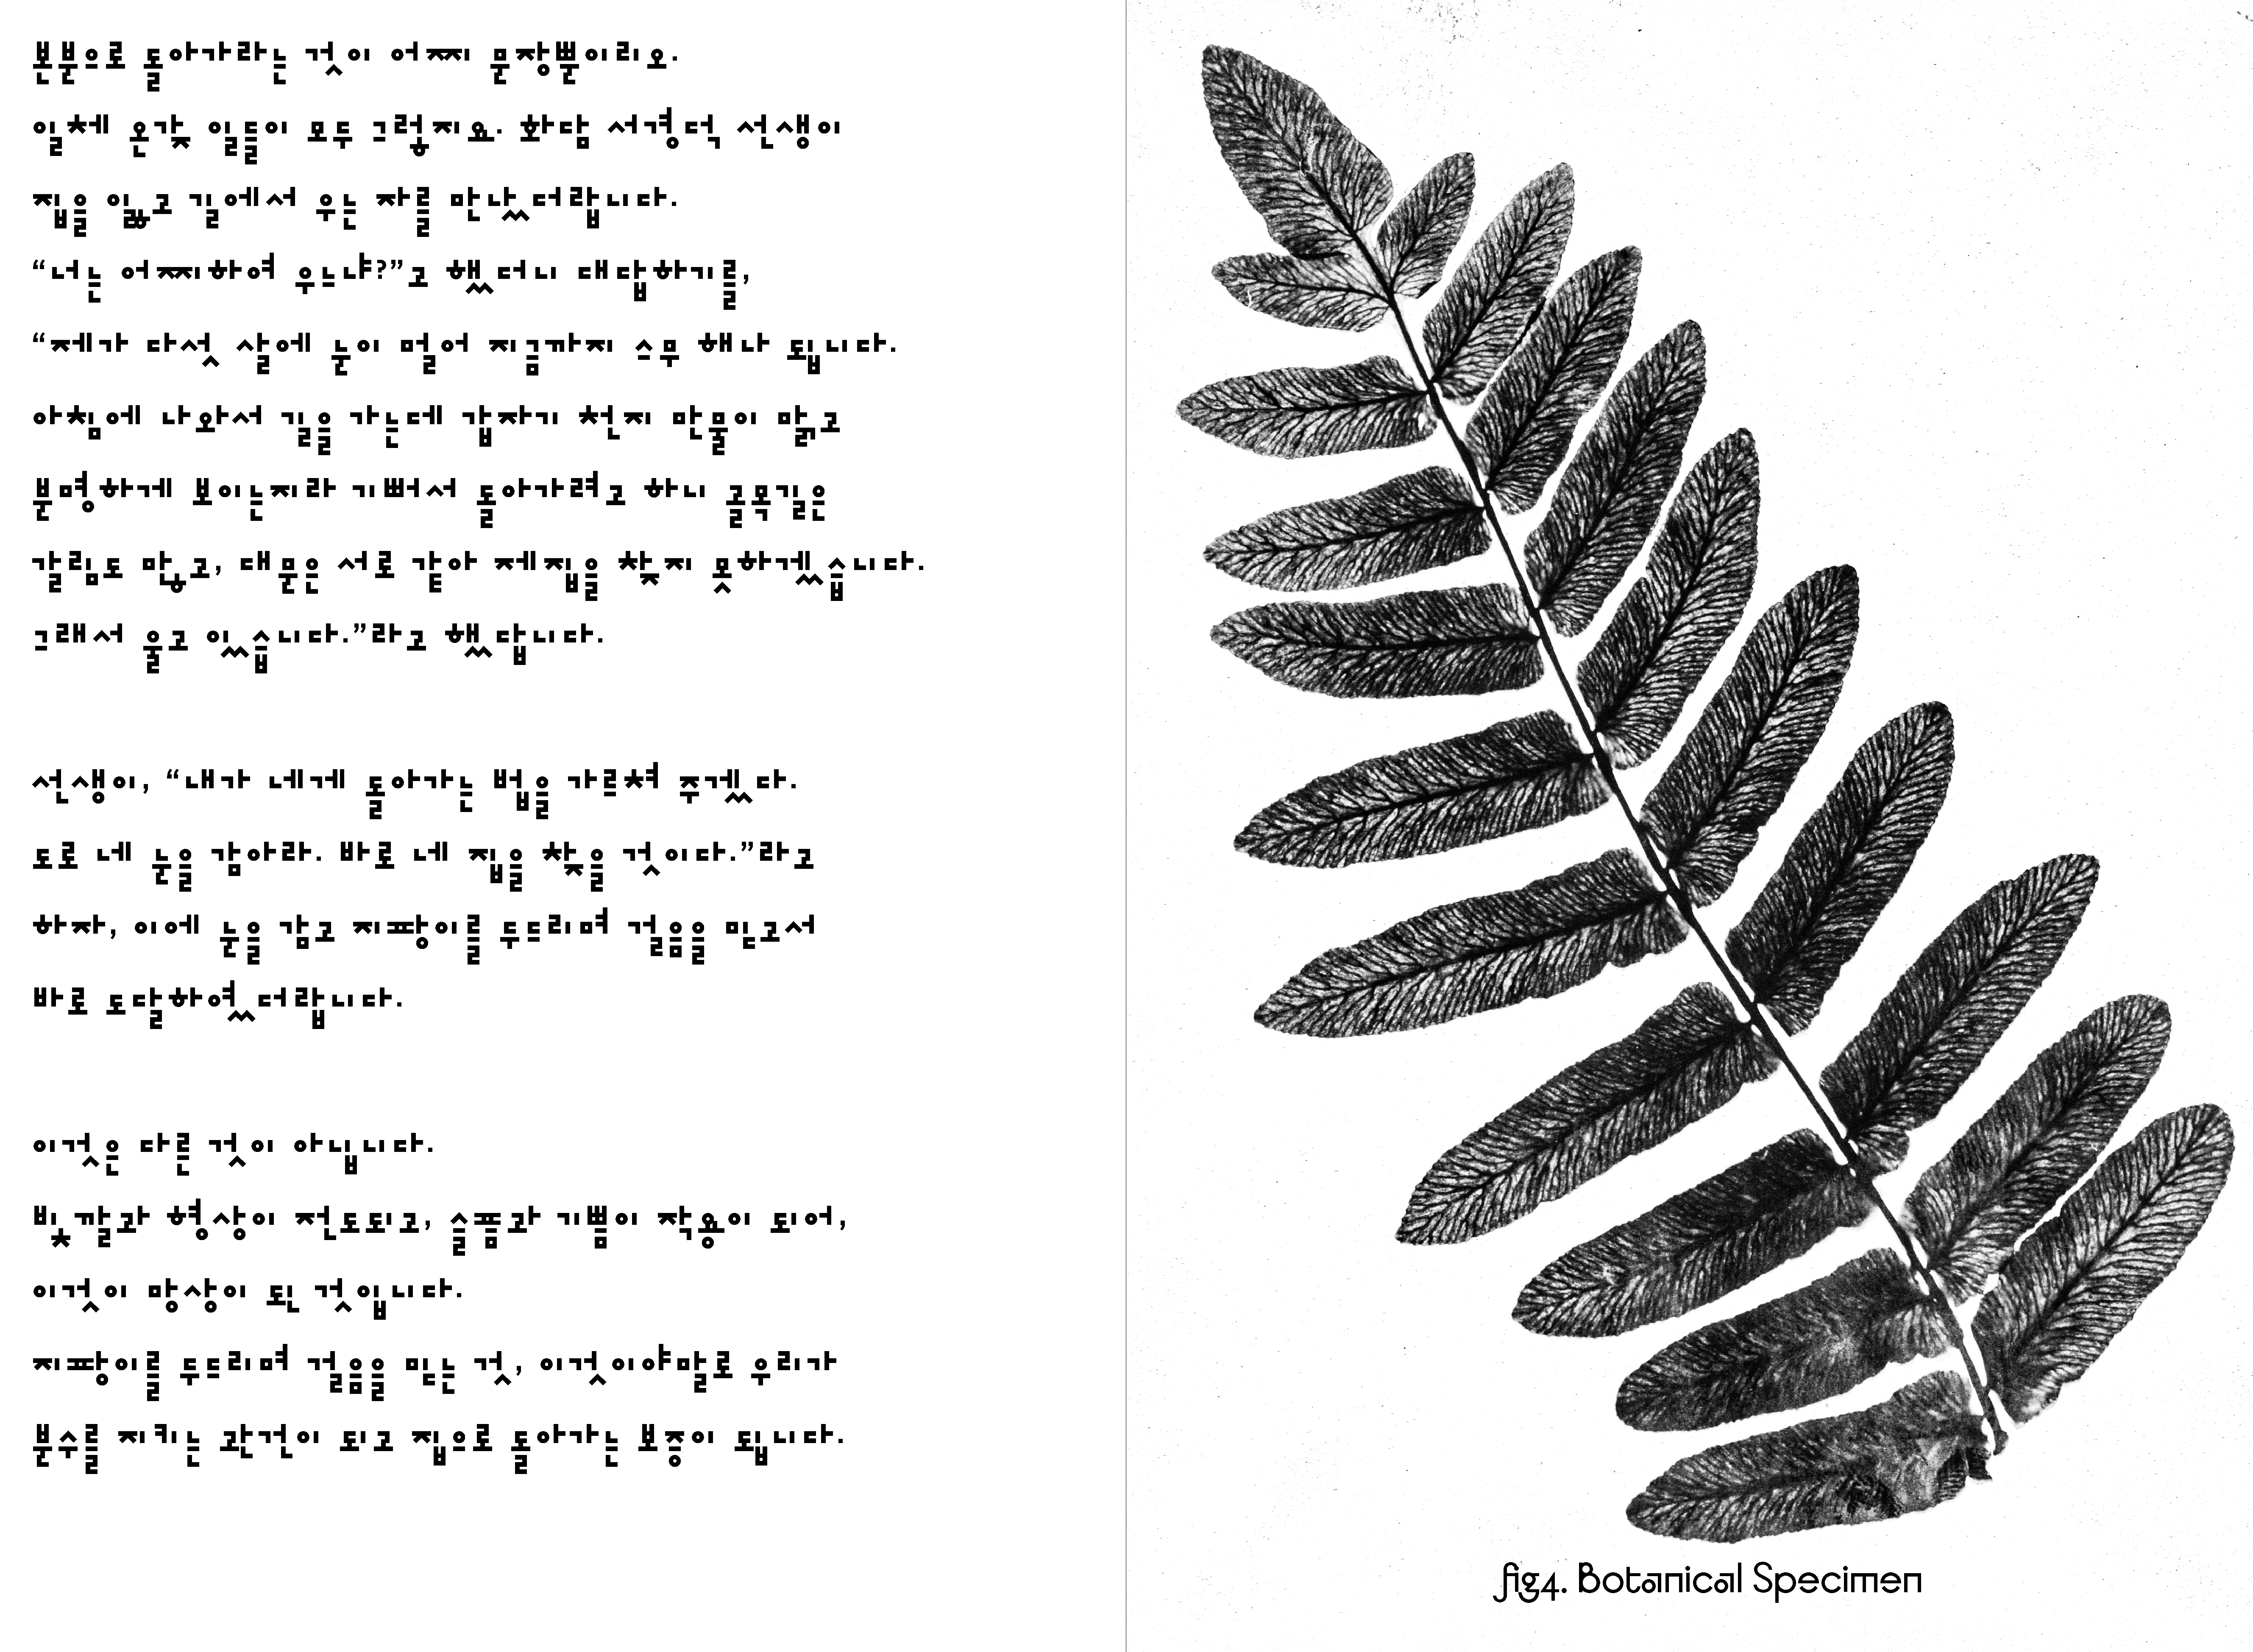 본분으로 돌아가라는 것이 어찌 문장뿐이리오.
일체 온갖 일들이 모두 그렇지요. 화담 서경덕 선생이
집을 잃고 길에서 우는 자를 만났더랍니다.
“너는 어찌하여 우느냐?”고 했더니 대답하기를,
“제가 다섯 살에 눈이 멀어 지금까지 스무 해나 됩니다.
아침에 나와서 길을 가는데 갑자기 천지 만물이 맑고
분명하게 보이는지라 기뻐서 돌아가려고 하니 골목길은
갈림도 많고, 대문은 서로 같아 제 집을 찾지 못하겠습니다.
그래서 울고 있습니다.”라고 했답니다.
선생이, “내가 네게 돌아가는 법을 가르쳐 주겠다.
도로 네 눈을 감아라. 바로 네 집을 찾을 것이다.”라고
하자, 이에 눈을 감고 지팡이를 두드리며 걸음을 믿고서
바로 도달하였더랍니다.
이것은 다른 것이 아닙니다.
빛깔과 형상이 전도되고, 슬픔과 기쁨이 작용이 되어,
이것이 망상이 된 것입니다.
지팡이를 두드리며 걸음을 믿는 것, 이것이야말로 우리가
분수를 지키는 관건이 되고 집으로 돌아가는 보증이 됩니다.
fig4. Botanical Specimen